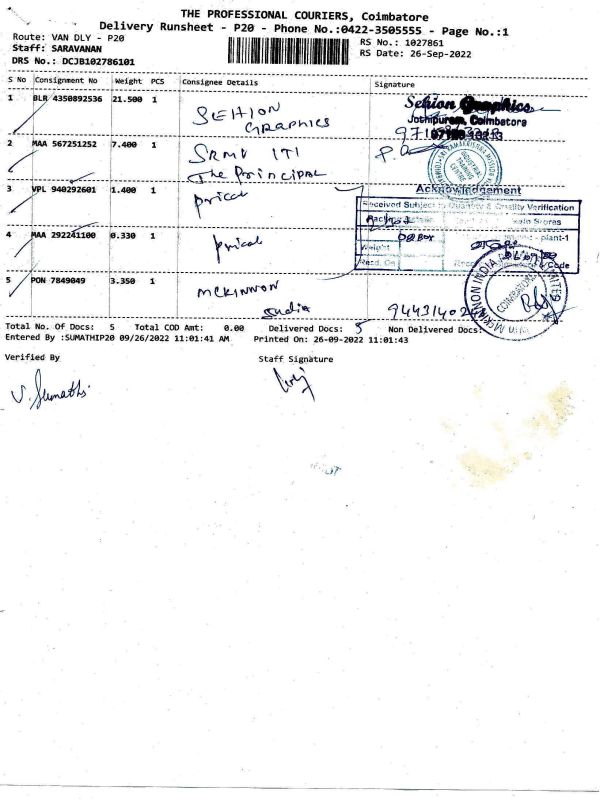 THE PROFESSIONAL COURIERS, Coimbatore
Delivery Runsheet - P20 - Phone No.:0422-3505555 - Page No.:1
Route: VAN DLY - P20
Staff: SARAVANAN
DRS No.: DCJB102786101
RS No.: 1027861
RS Date: 26-Sep-2022
S No Consignment No Weight PCS Consignee Details Signature
1 BLR 4350892536 21.500 1 SEHION GRAPHICS
Sehion Graphics
Jothipuram, Coimbatore
2 MAA 567251252 7.400 1 SRMV ITI
The Principal
3 VPL 940292601 1.400 1 pricol
Acknowledgement
Received Subject to Quantity & Quality Verification
4 MAA 292241100 0.330 1 pricol
Stores
plant-1
Weight
Code
5 PON 7849049 3.350 1 MCKINNON
India
MCKINNON INDIA
COIMBATORE
Total No. Of Docs: 5 Total COD Amt: 0.00 Delivered Docs: 5 Non Delivered Docs:
Entered By :SUMATHIP20 09/26/2022 11:01:41 AM Printed On: 26-09-2022 11:01:43
Verified By Staff Signature
V. Sumathi